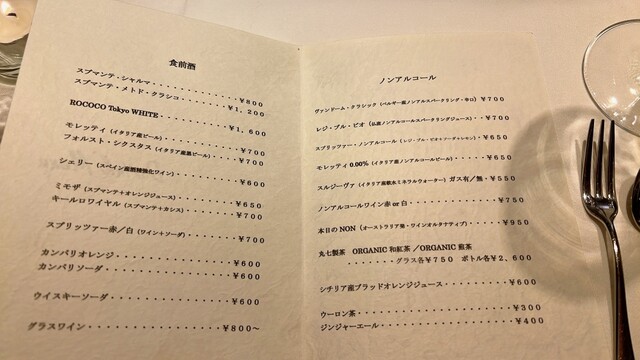 食前酒
スプマンテ・シャルマ・・・・・・・・・・・・¥800
スプマンテ・メトド・クラシコ・・・・・・・・¥1,200
ROCOCO Tokyo WHITE・・・・・・・・・・・¥1,600
モレッティ(イタリア産ビール)・・・・・・・・・・¥700
フォルスト・シクスタス(イタリア産黒ビール)・・・・¥700
シェリー(スペイン産酒精強化ワイン)・・・・・・・・¥600
ミモザ(スプマンテ+オレンジジュース)・・・・・・・¥650
キールロワイヤル(スプマンテ+カシス)・・・・・・・¥700
スプリッツァー赤/白(ワイン+ソーダ)・・・・・・・¥700
カンパリオレンジ・・・・・・・・・・・・・・¥600
カンパリソーダ・・・・・・・・・・・・・・・¥600
ウイスキーソーダ・・・・・・・・・・・・・・¥600
グラスワイン・・・・・・・・・・・・・・・・¥800～
ノンアルコール
ヴァンドーム・クラシック(ベルギー産ノンアルスパークリング・辛口)・¥700
レジ・ブル・ピオ(仏産ノンアルコールスパークリングジュース)・・・¥700
スプリッツァー・ノンアルコール(レジ・ブル・ピオ+ソーダ+レモン)・¥650
モレッティ 0.00%(イタリア産ノンアルコールビール)・・・・・・¥650
スルジーヴァ(イタリア産軟水ミネラルウォーター)ガス有/無・・¥550
ノンアルコールワイン赤 or 白・・・・・・・・・・・¥750
本日の NON(オーストラリア発・ワインオルタナティブ)・・・・・¥950
丸七製茶 ORGANIC 和紅茶/ORGANIC 煎茶
・・・・・・・・グラス各¥750 ボトル各¥2,600
シチリア産ブラッドオレンジジュース・・・・・・・・¥600
ウーロン茶・・・・・・・・・・・・・・・・・・¥300
ジンジャーエール・・・・・・・・・・・・・・・¥400